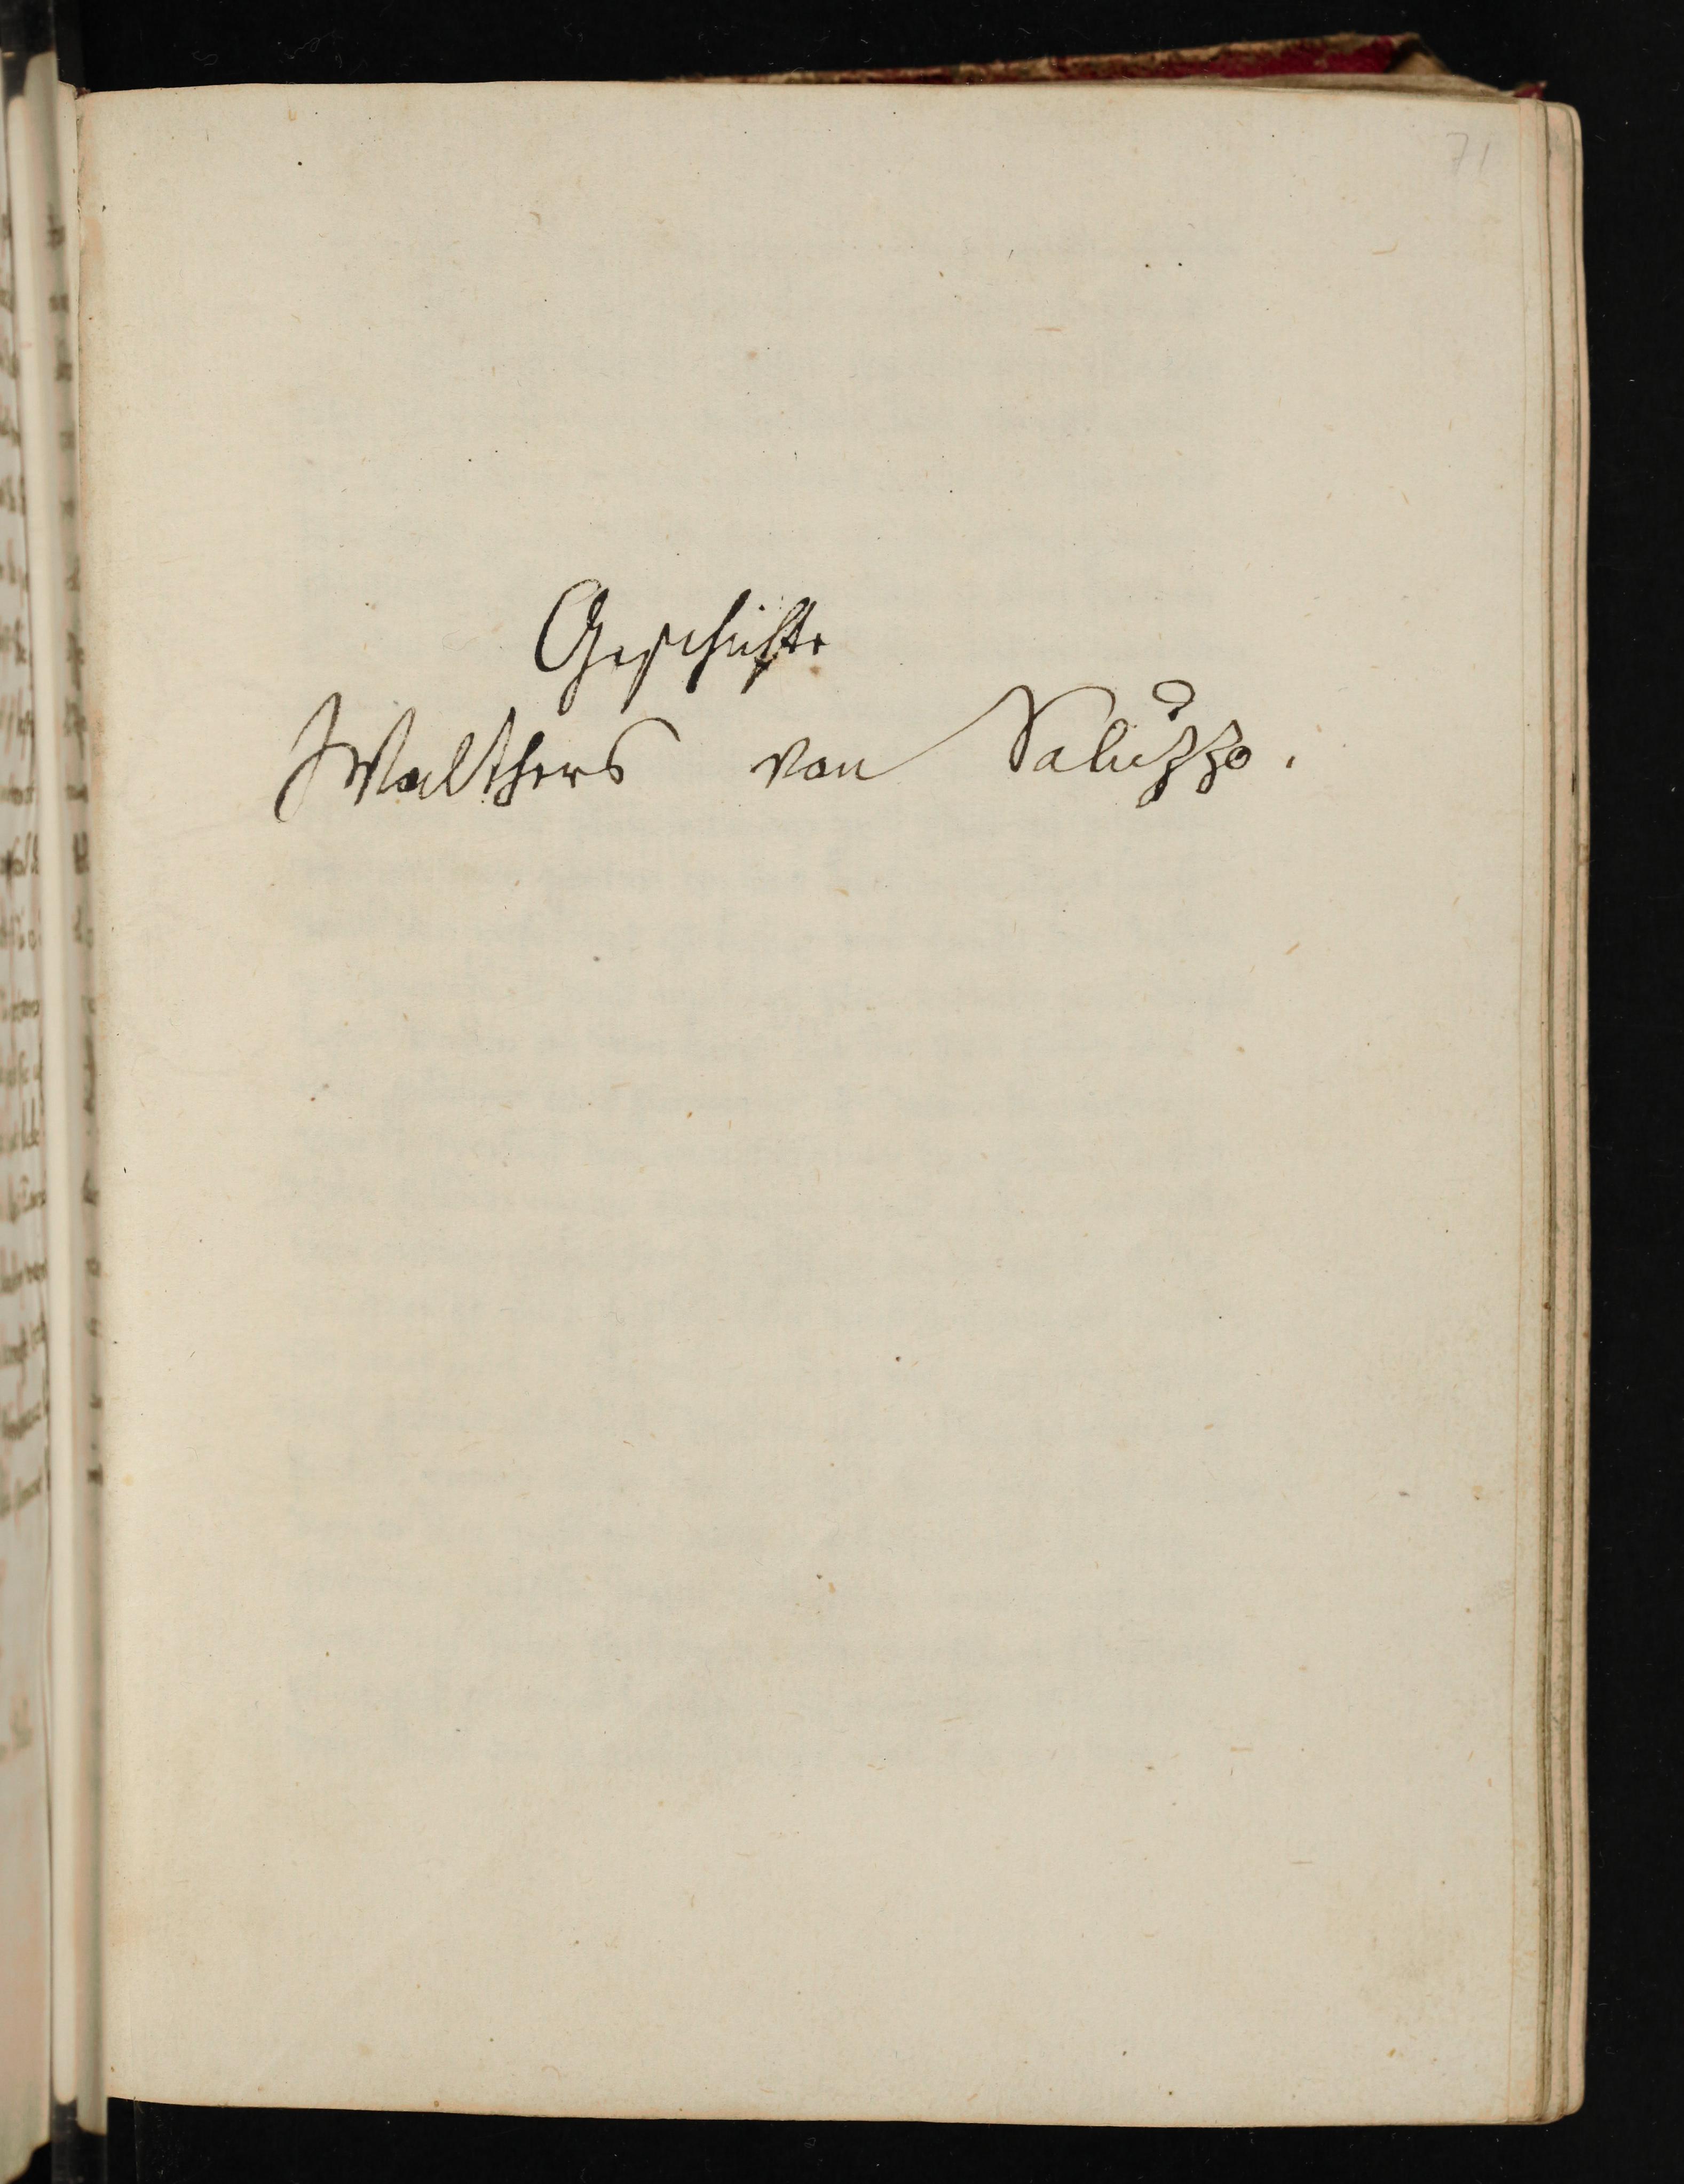 71
Geschichte
Walthers von Saluzzo.